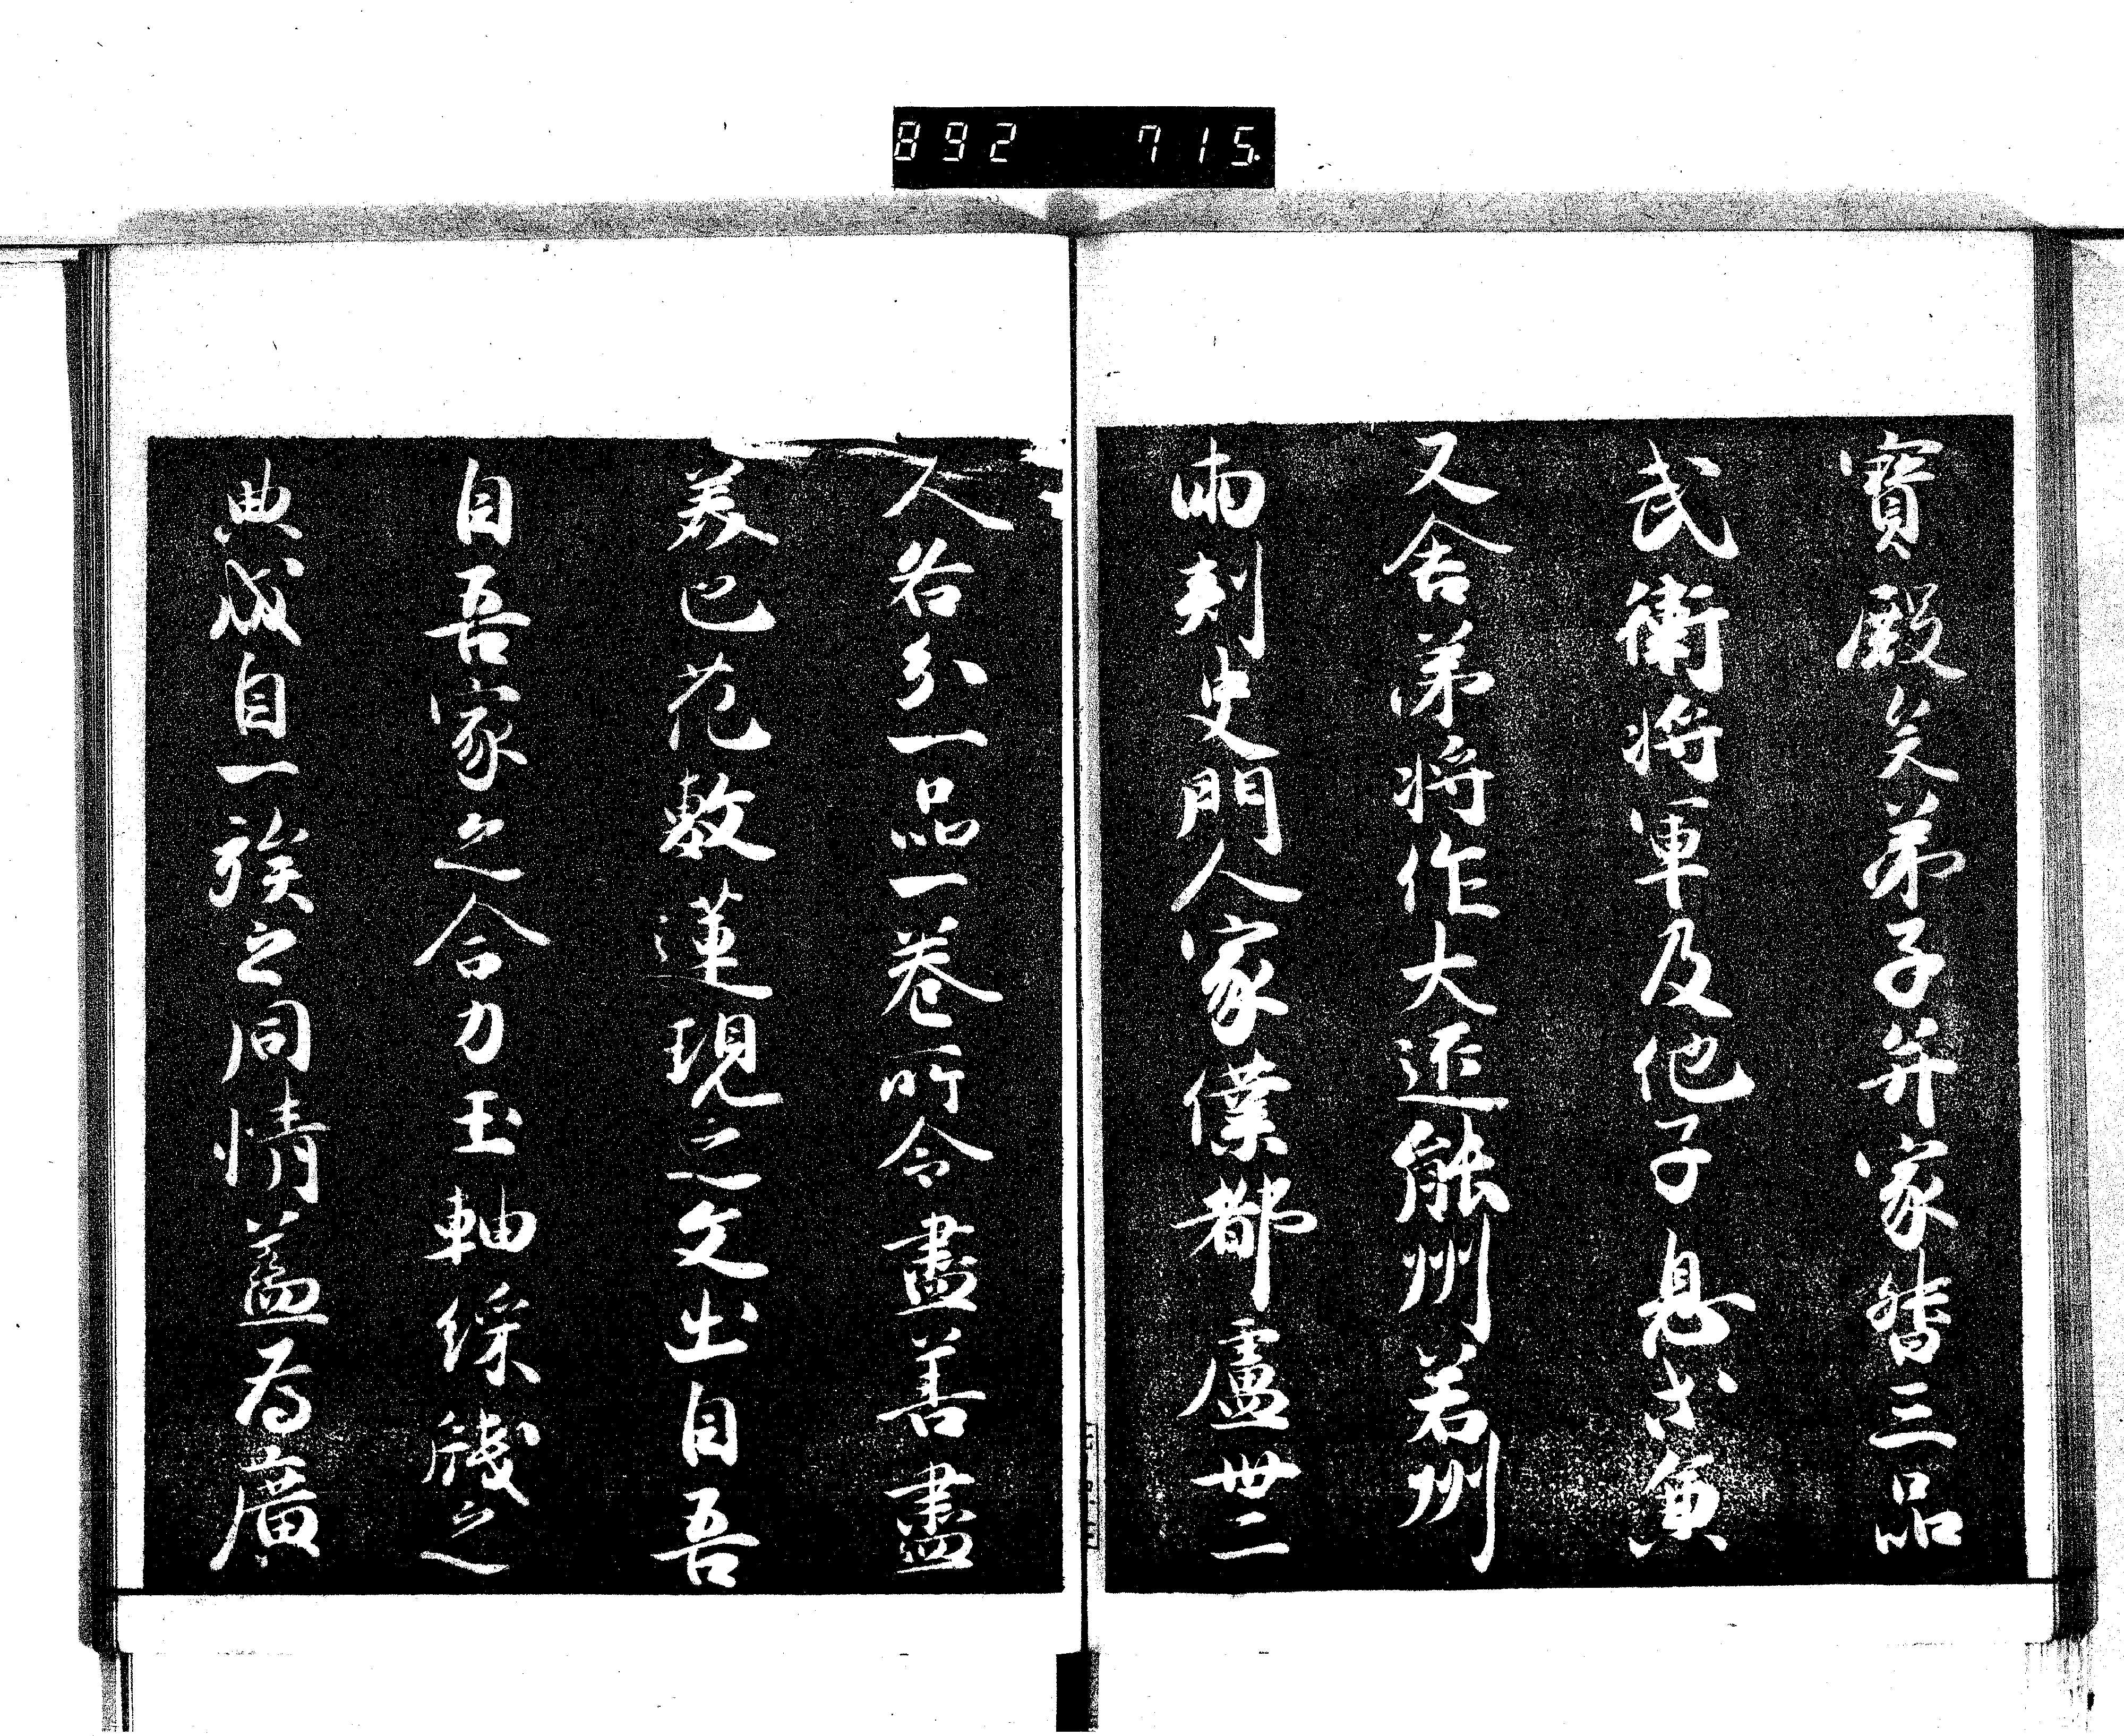 892 715.
寶殿矣弟子并家督三品
武衛将軍及他子息等兼
又舎弟将作大匠能州若州
兩刺史門人家僕都盧卅二
人各分一品一巻所令盡善盡
美已花敷蓮現之文出自吾
自吾家之合力玉軸綵牋之
典成自一族之同情蓋為廣